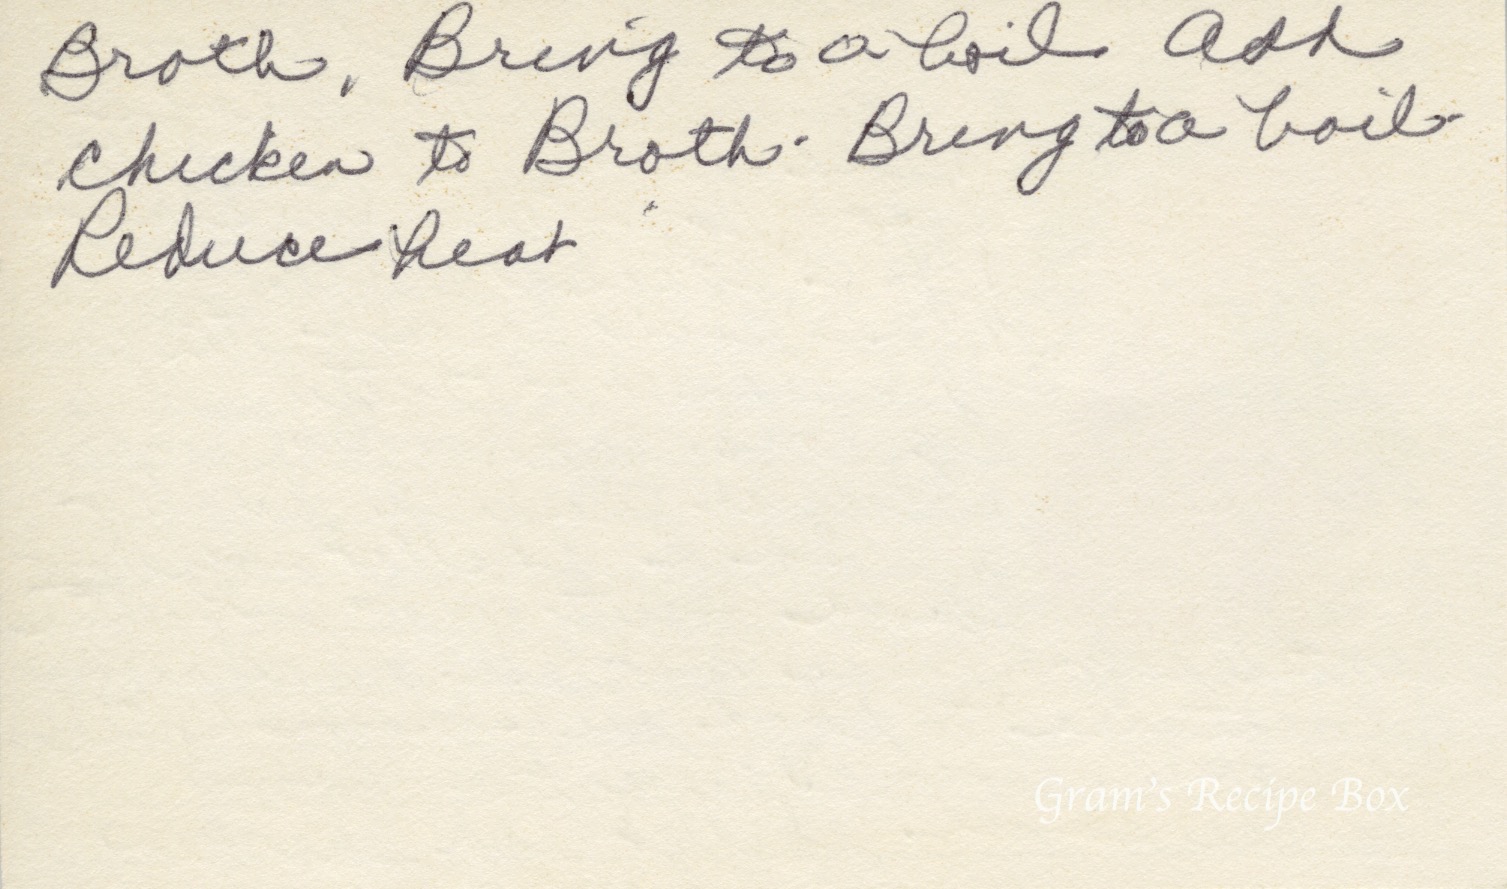 Broth. Bring to a boil Add
chicken to Broth. Bring to a boil.
Reduce heat
Gram's Recipe Box